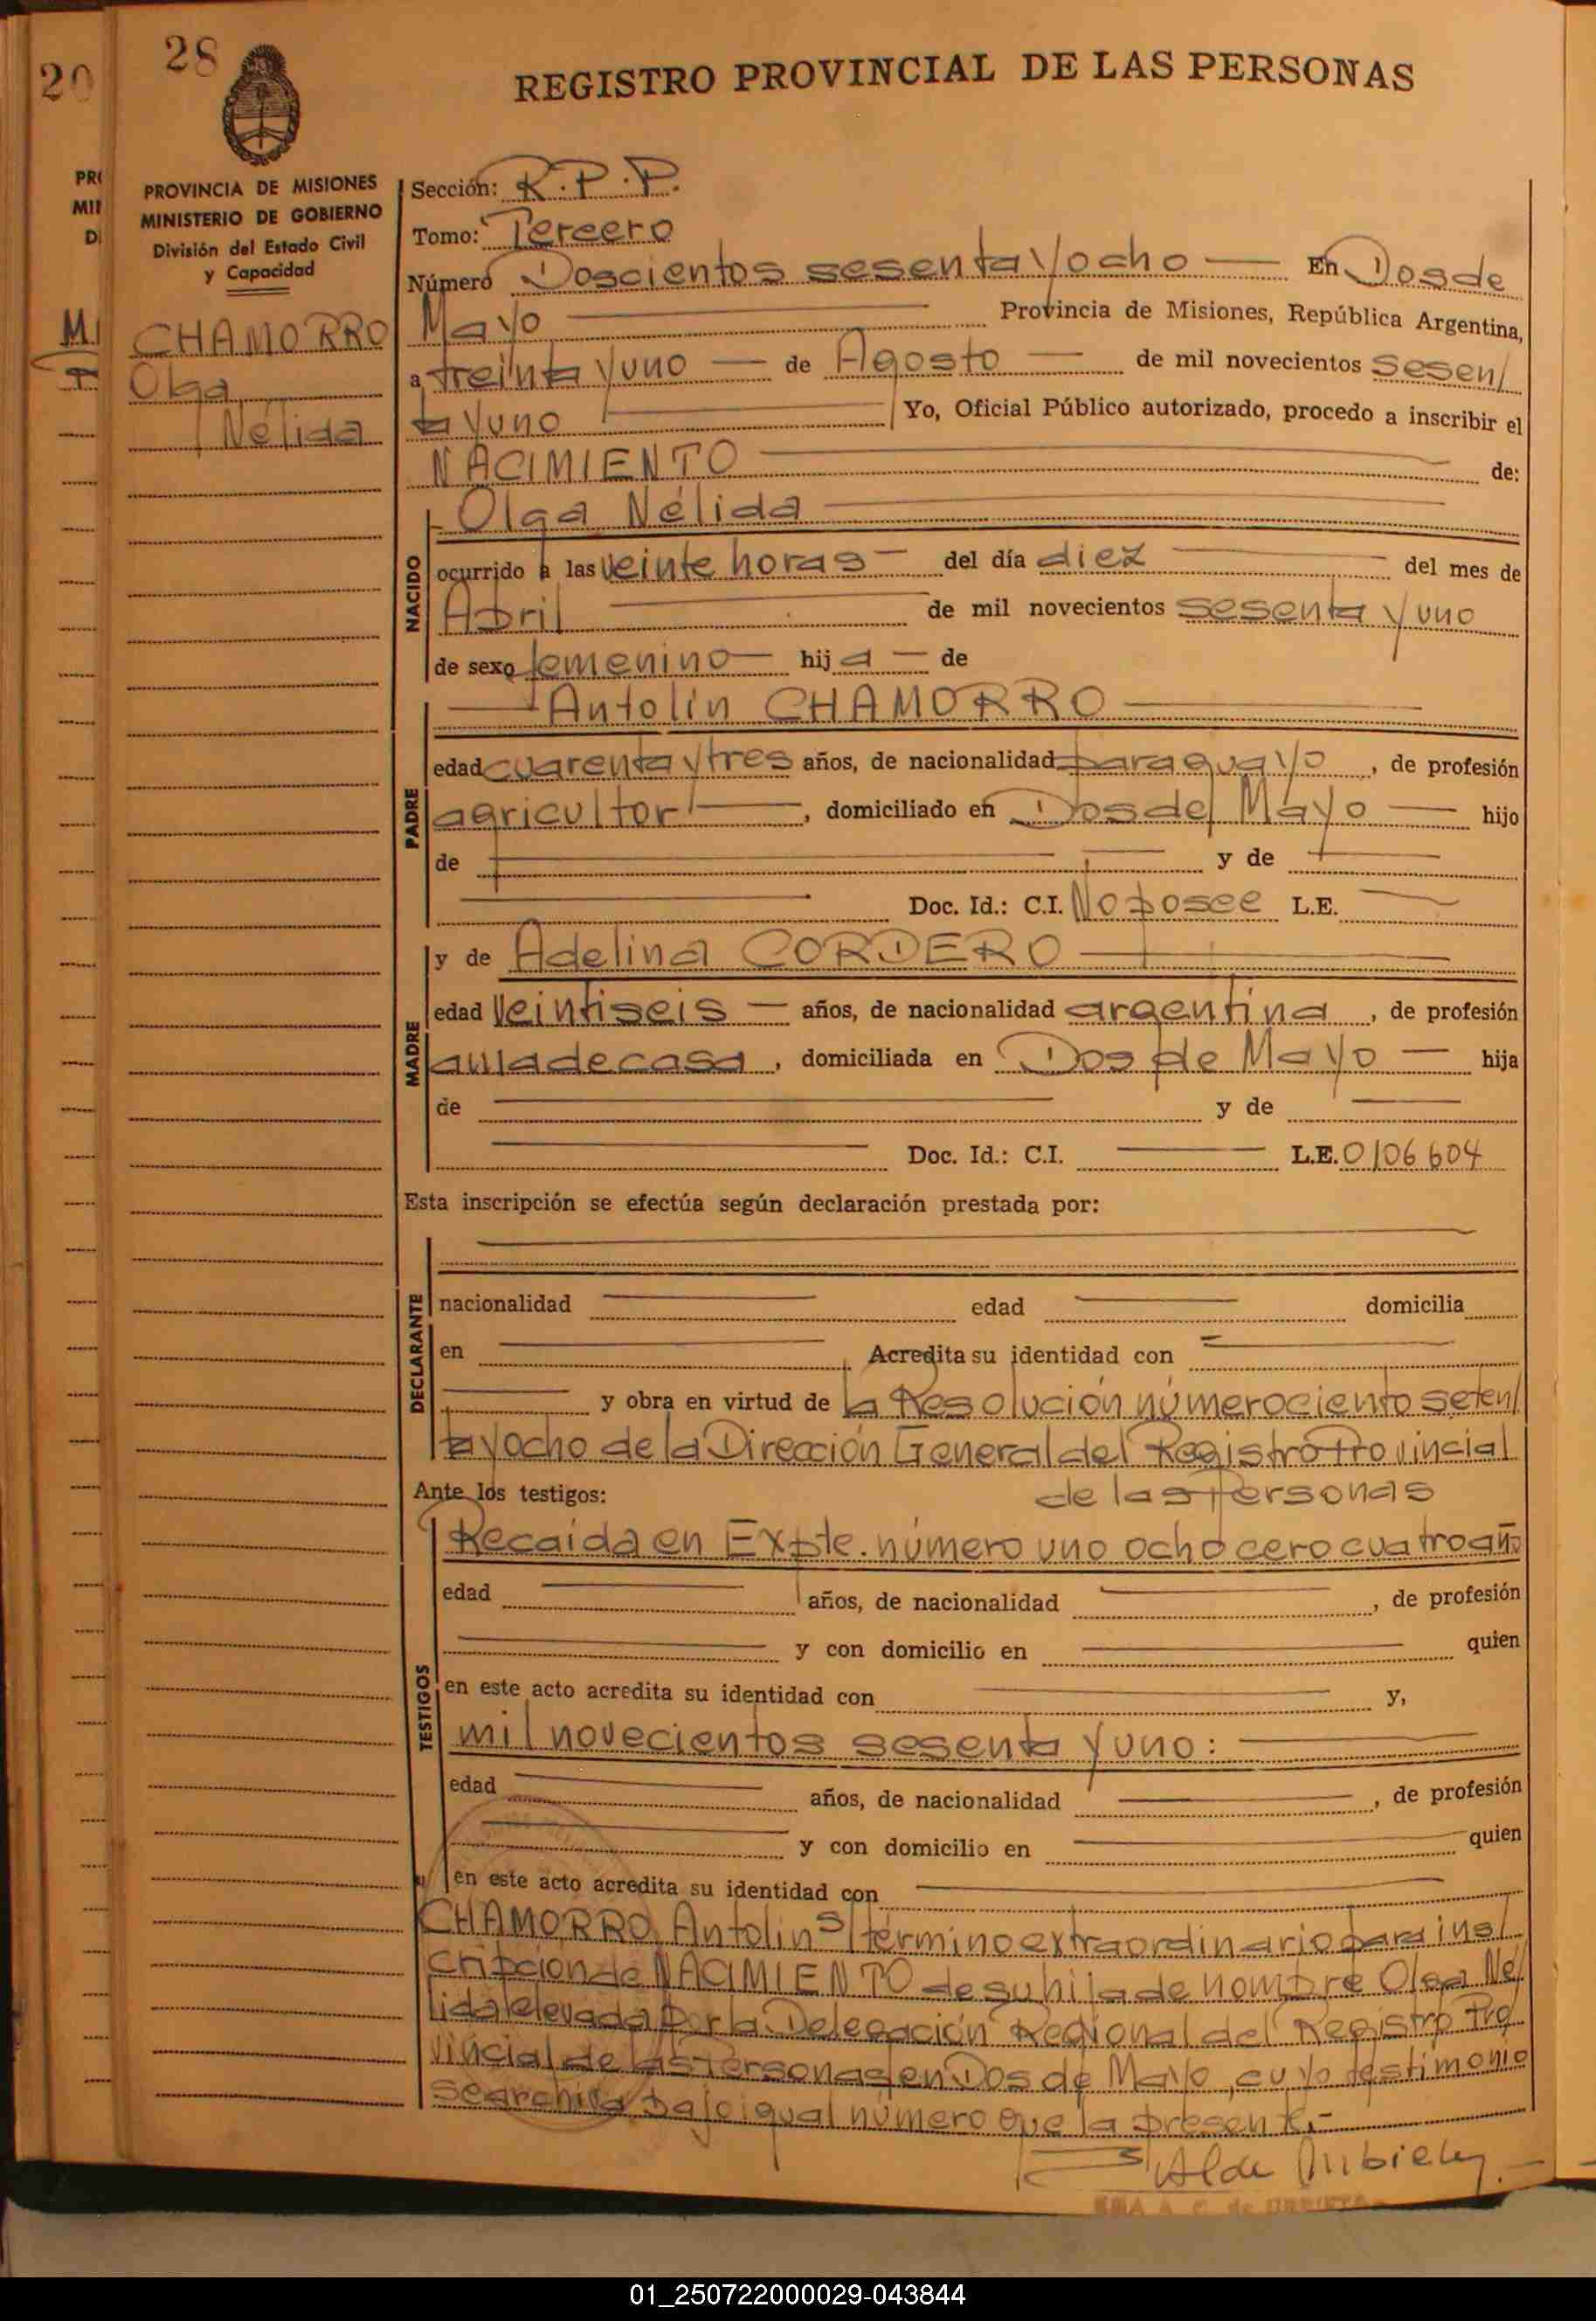 20
28
REGISTRO PROVINCIAL DE LAS PERSONAS
PROVINCIA DE MISIONES
MINISTERIO DE GOBIERNO
División del Estado Civil
y Capacidad
CHAMORRO
Olga
Nélida
Sección: R.P.P.
Tomo: Tercero
Número Doscientos sesenta y ocho — En Dos de
Mayo — Provincia de Misiones, República Argentina,
a treinta y uno — de Agosto — de mil novecientos sesen/
ta y uno — Yo, Oficial Público autorizado, procedo a inscribir el
NACIMIENTO — de:
NACIDO
Olga Nélida —
ocurrido a las veinte horas — del día diez — del mes de
Abril — de mil novecientos sesenta y uno
de sexo femenino — hija — de
PADRE
— Antolín CHAMORRO —
edad cuarenta y tres años, de nacionalidad paraguayo, de profesión
agricultor —, domiciliado en Dos de Mayo — hijo
de — y de —
— Doc. Id.: C.I. No posee L.E. —
MADRE
y de Adelina CORDERO —
edad veintiseis — años, de nacionalidad argentina, de profesión
ama de casa, domiciliada en Dos de Mayo — hija
de — y de —
— Doc. Id.: C.I. — L.E. 0106604
Esta inscripción se efectúa según declaración prestada por:
DECLARANTE
nacionalidad — edad — domicilia
en — Acredita su identidad con —
— y obra en virtud de la Resolución número ciento seten/
ta y ocho de la Dirección General del Registro Provincial
Ante los testigos: de las Personas
TESTIGOS
Recaída en Expte. número uno ocho cero cuatro año
edad — años, de nacionalidad —, de profesión
— y con domicilio en — quien
en este acto acredita su identidad con — y,
mil novecientos sesenta y uno: —
edad — años, de nacionalidad —, de profesión
— y con domicilio en — quien
en este acto acredita su identidad con —
CHAMORRO, Antolín s/término extraordinario para ins/
cripción de NACIMIENTO de su hija de nombre Olga Né/
lida elevada por la Delegación Regional del Registro Pro
vincial de las Personas en Dos de Mayo, cuyo testimonio
se archiva bajo igual número que la presente.-
01_250722000029-043844